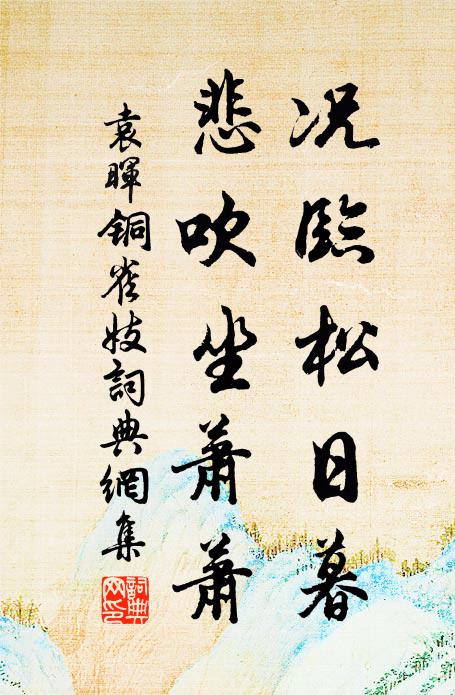 况臨松日暮
悲吹坐蕭蕭
袁暉銅雀妓詞典網集
詞典網印